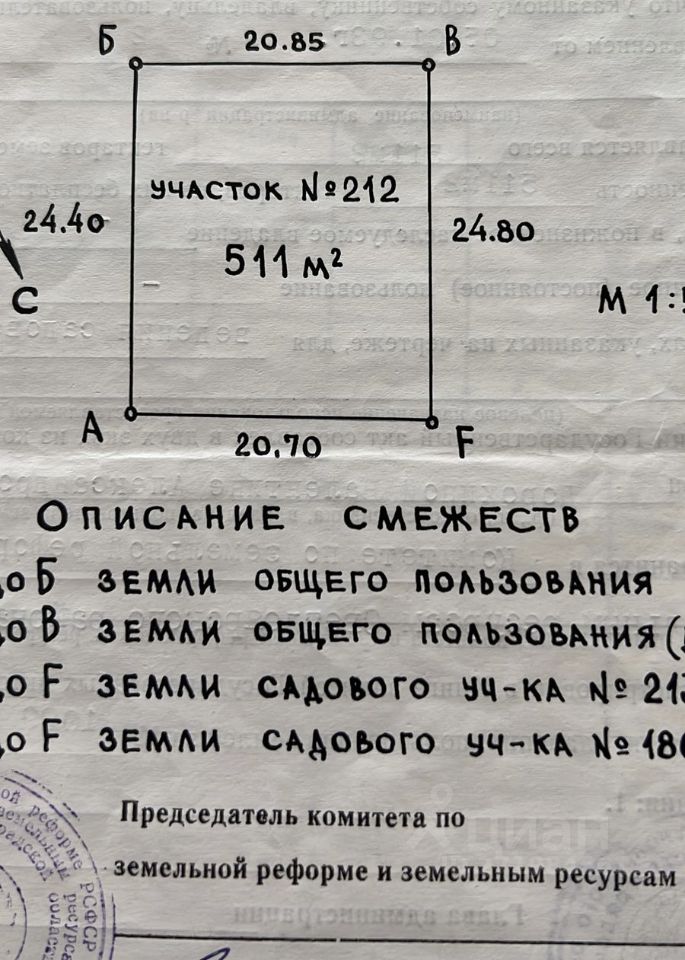 Б 20.85 В
УЧАСТОК №212
24.40 24.80
511 м²
С
М 1:
А F
20.70
ОПИСАНИЕ СМЕЖЕСТВ
до Б ЗЕМЛИ ОБЩЕГО ПОЛЬЗОВАНИЯ
до В ЗЕМЛИ ОБЩЕГО ПОЛЬЗОВАНИЯ (
до F ЗЕМЛИ САДОВОГО УЧ-КА № 21
до F ЗЕМЛИ САДОВОГО УЧ-КА № 18
Председатель комитета по
земельной реформе и земельным ресурсам
ой реформе РСФСР
земельным ресурса